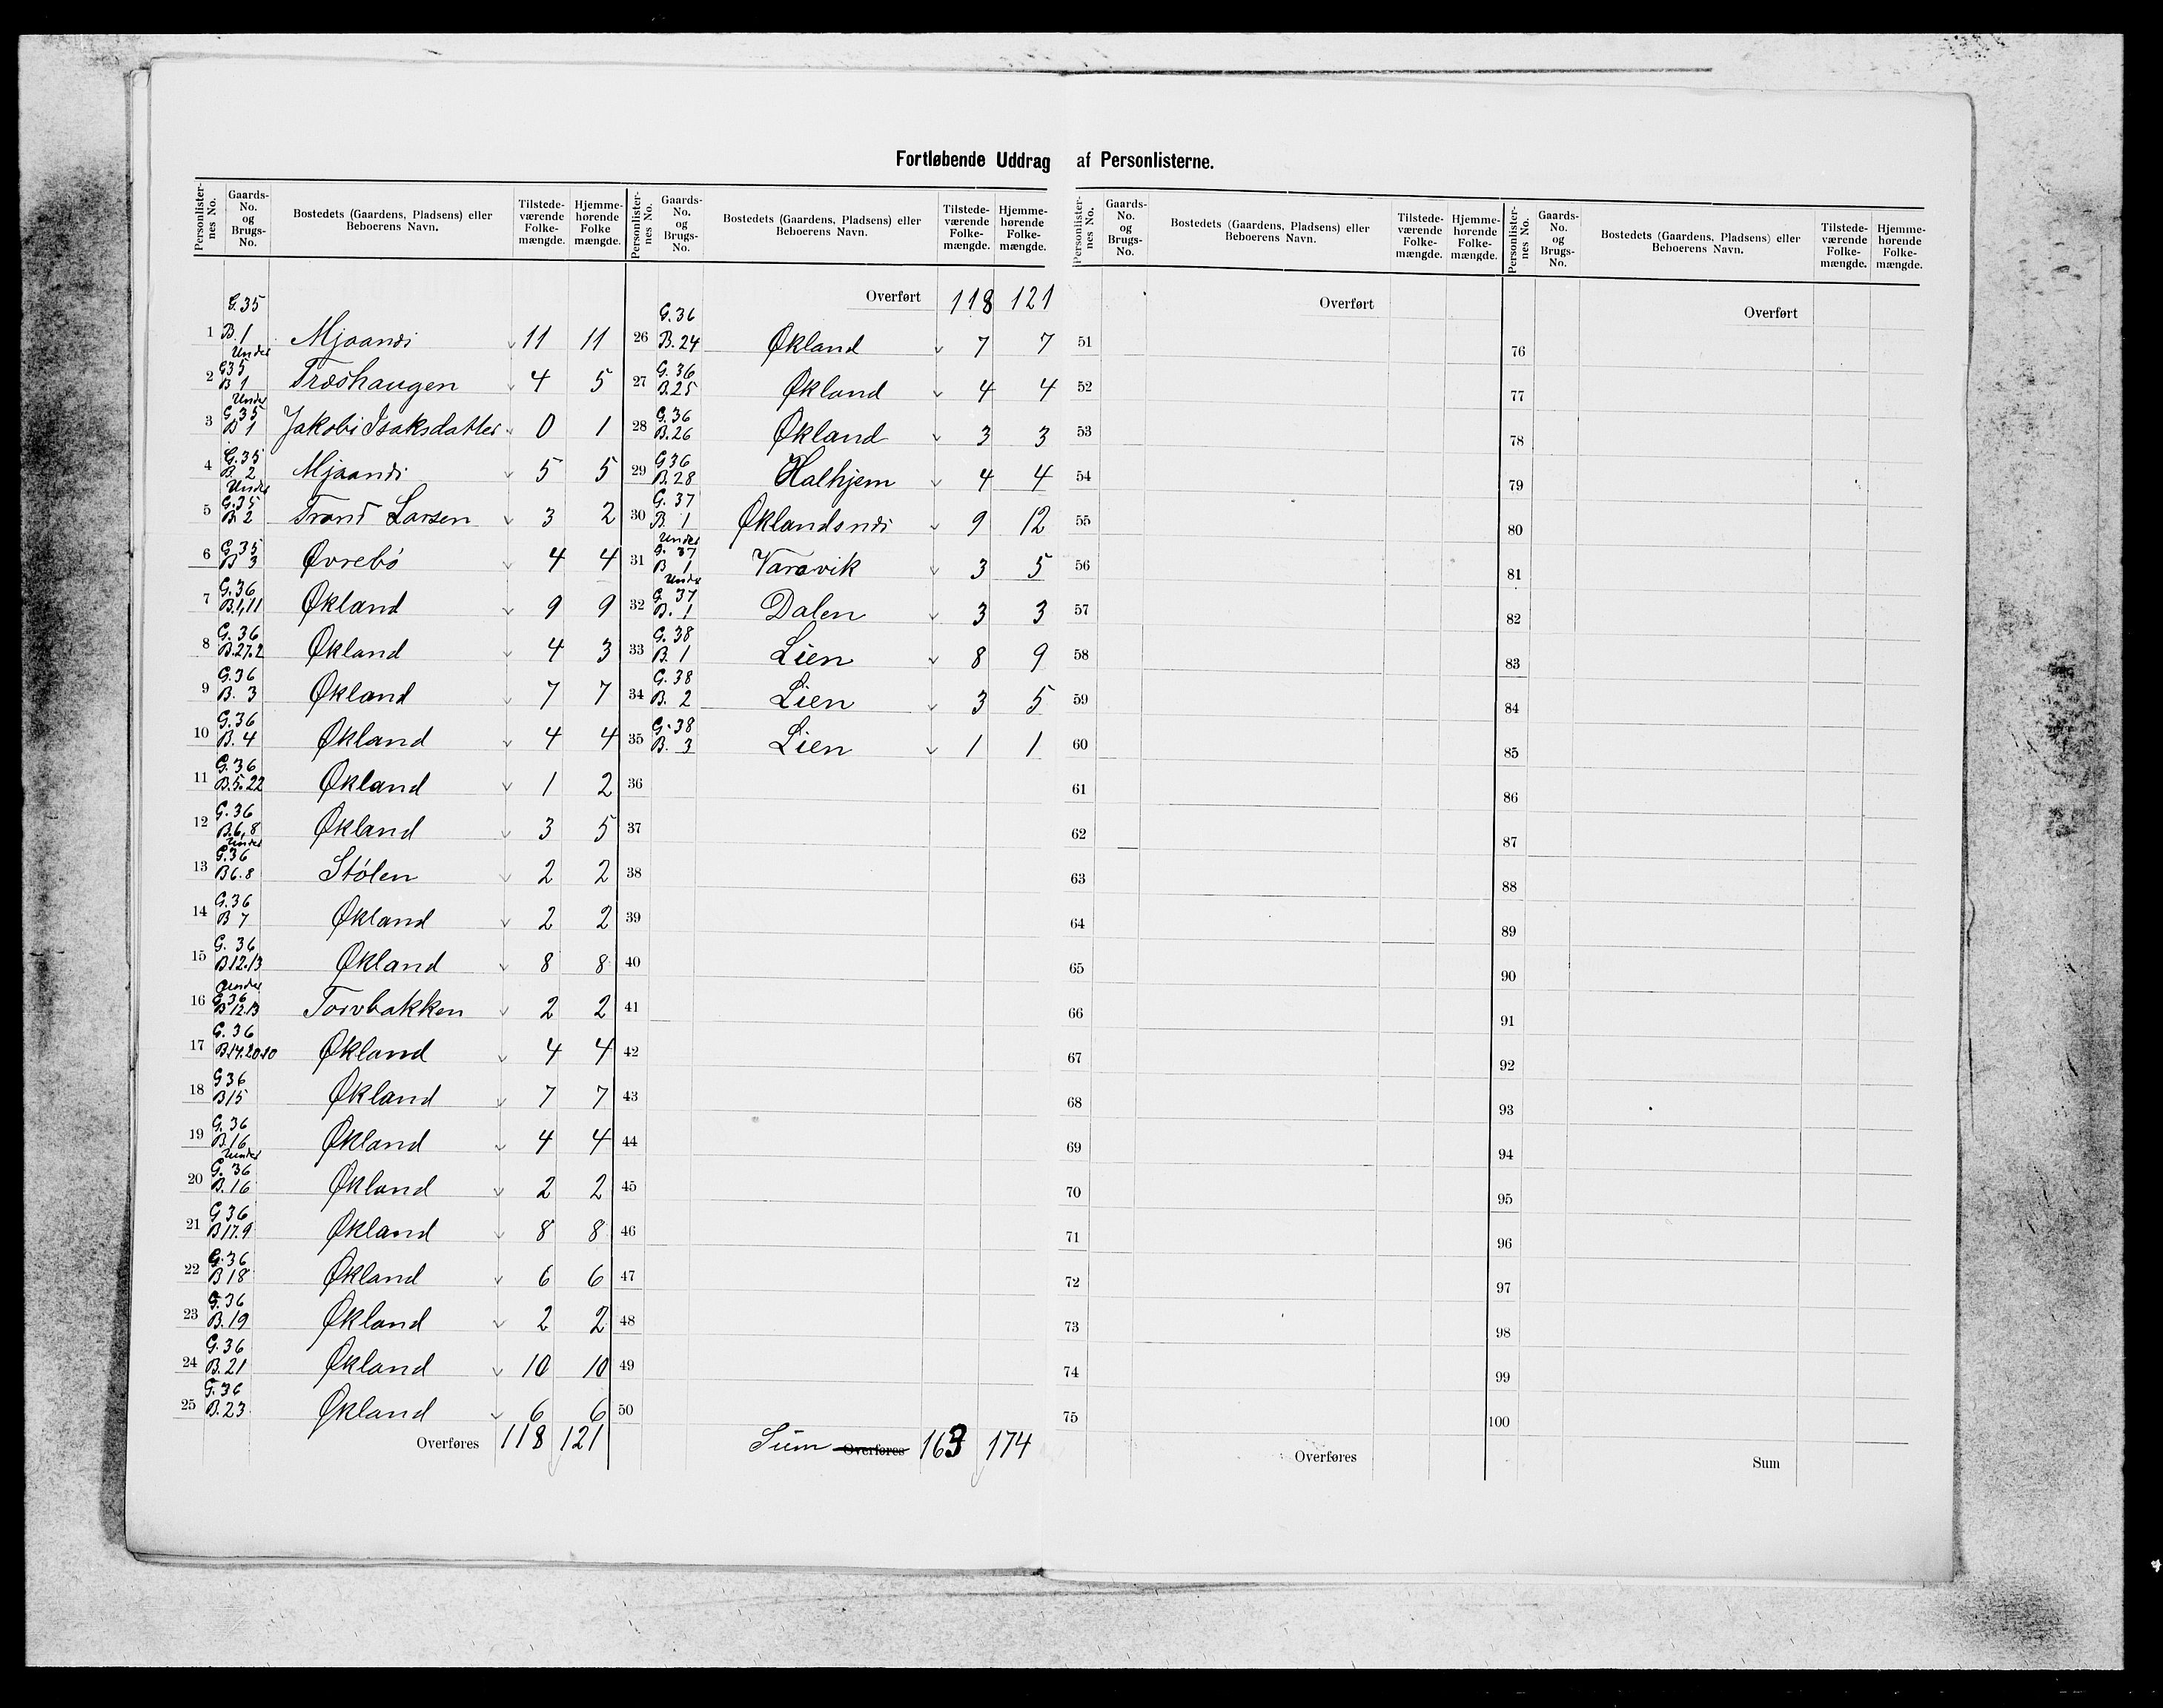 Fortløbende Uddrag af Personlisterne.
Personlister-nes No. | Gaards-No. og Brugs-No. | Bostedets (Gaardens, Pladsens) eller Beboerens Navn. | Tilstede-værende Folke-mængde. | Hjemme-hørende Folke mængde.
1 G.35 B.1 Mjaanæs 11 11
2 Under G35 B 1 Træshaugen 4 5
3 Under G.35 B 1 Jakobi Isaksdatter 0 1
4 G.35 B 2 Mjaanæs 5 5
5 Under G.35 B 2 Trond Larsen 3 2
6 G.35 B 3 Øvrebö 4 4
7 G.36 B.1,11 Økland 9 9
8 G.36 B.27.2 Økland 4 3
9 G.36 B. 3 Økland 7 7
10 G.36 B. 4 Økland 4 4
11 G.36 B.5.22 Økland 1 2
12 G.36 B.6,8 Økland 3 5
13 Under G.36 B6.8 Stölen 2 2
14 G.36 B 7 Økland 2 2
15 G. 36 B12.13 Økland 8 8
16 Under G.36 B12.13 Torvbakken 2 2
17 G. 36 B.14.20.10 Økland 4 4
18 G36 B15 Økland 7 7
19 G.36 B.16 Økland 4 4
20 Under G. 36 B.16 Økland 2 2
21 G 36 B17.9 Økland 8 8
22 G.36 B18 Økland 6 6
23 G.36 B.19 Økland 2 2
24 G.36 B.21 Økland 10 10
25 G.36 B.23 Økland 6 6
Overføres 118 121
Personlister-nes No. | Gaards-No. og Brugs-No. | Bostedets (Gaardens, Pladsens) eller Beboerens Navn. | Tilstede-værende Folke-mængde. | Hjemme-hørende Folke-mængde.
Overført 118 121
26 G.36 B.24 Økland 7 7
27 G. 36 B.25 Økland 4 4
28 G.36 B.26 Økland 3 3
29 G36 B.28 Halhjem 4 4
30 G. 37 B. 1 Øklandsnæs 9 12
31 Under G. 37 B 1 Varavik 3 5
32 Under G. 37 B. 1 Dalen 3 3
33 G. 38 B. 1 Lien 8 9
34 G. 38 B. 2 Lien 3 5
35 G.38 B. 3 Lien 1 1
36
37
38
39
40
41
42
43
44
45
46
47
48
49
50
Sum Overføres 163 174
Personlister-nes No. | Gaards-No. og Brugs-No. | Bostedets (Gaardens, Pladsens) eller Beboerens Navn. | Tilstede-værende Folke-mængde. | Hjemme-hørende Folke-mængde.
Overført
51
52
53
54
55
56
57
58
59
60
61
62
63
64
65
66
67
68
69
70
71
72
73
74
75
Overføres
Personlister-nes No. | Gaards-No. og Brugs-No. | Bostedets (Gaardens, Pladsens) eller Beboerens Navn. | Tilstede-værende Folke-mængde. | Hjemme-hørende Folke-mængde.
Overført
76
77
78
79
80
81
82
83
84
85
86
87
88
89
90
91
92
93
94
95
96
97
98
99
100
Sum